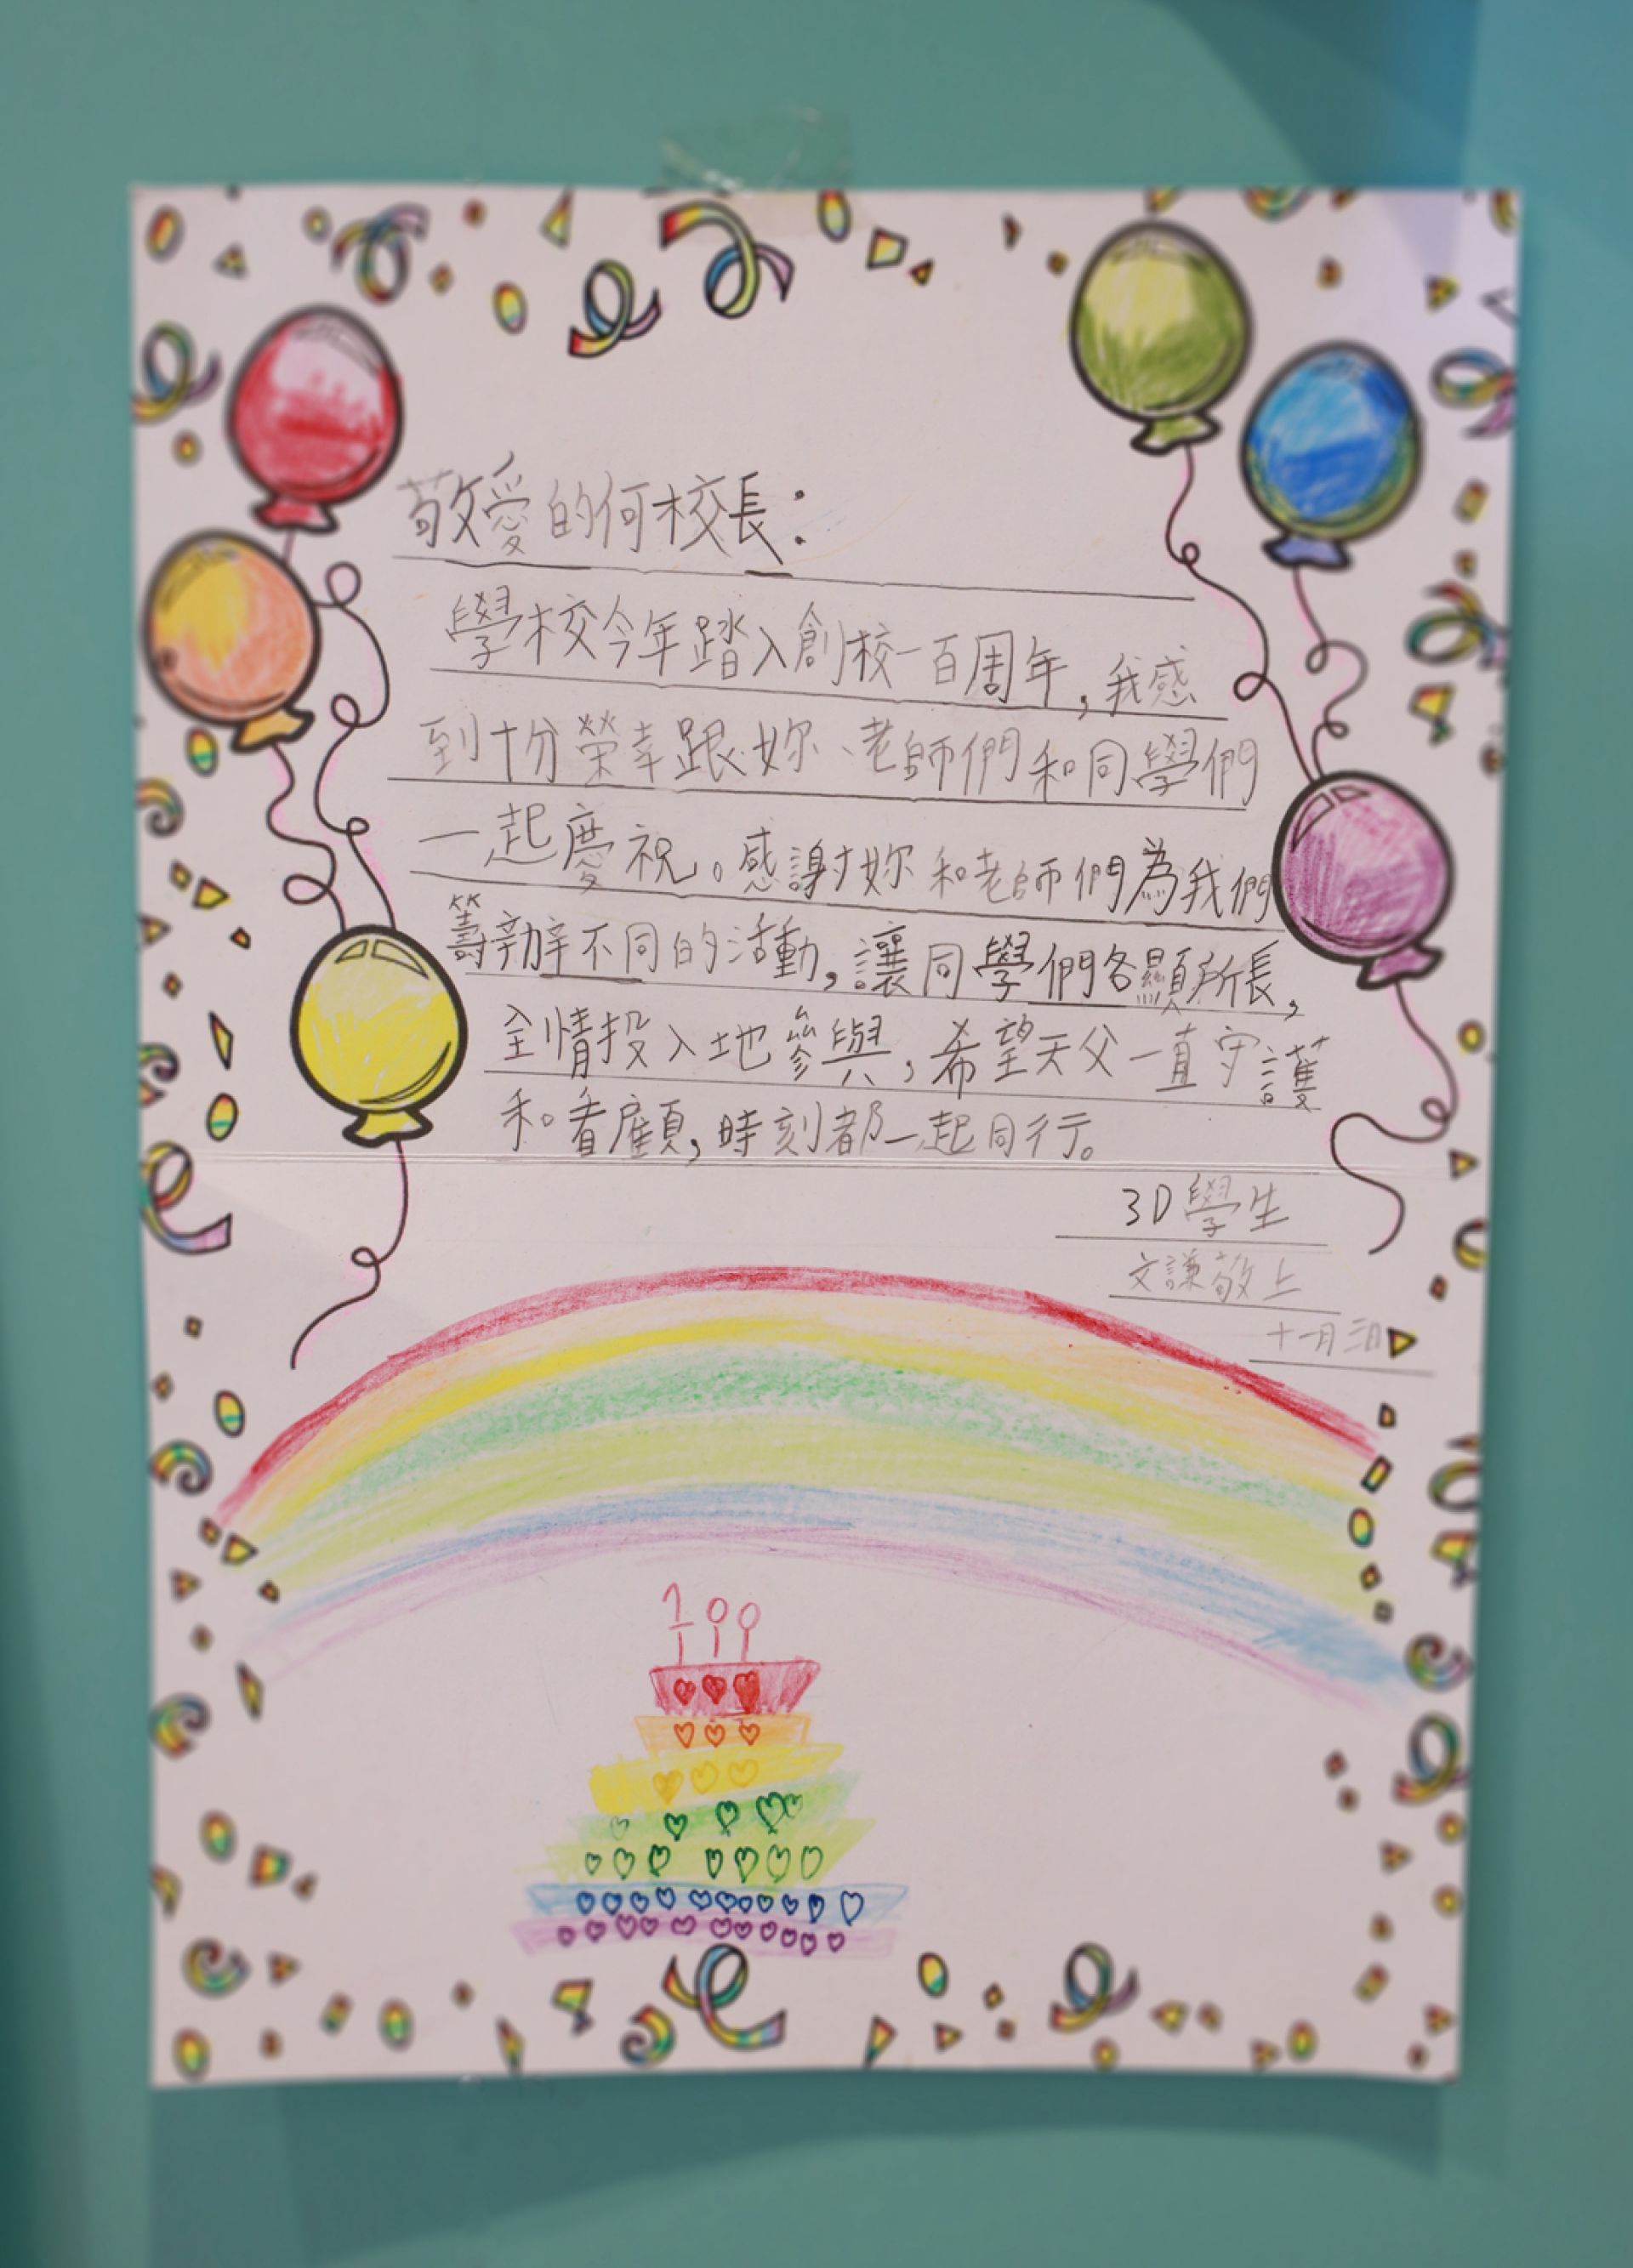 敬愛的何校長：
學校今年踏入創校一百周年，我感
到十分榮幸跟妳、老師們和同學們
一起慶祝。感謝妳和老師們為我們
籌辦不同的活動，讓同學們各顯所長，
全情投入地參與，希望天父一直守護
和看顧，時刻都一起同行。
3D學生
文謙敬上
十一月三日
100